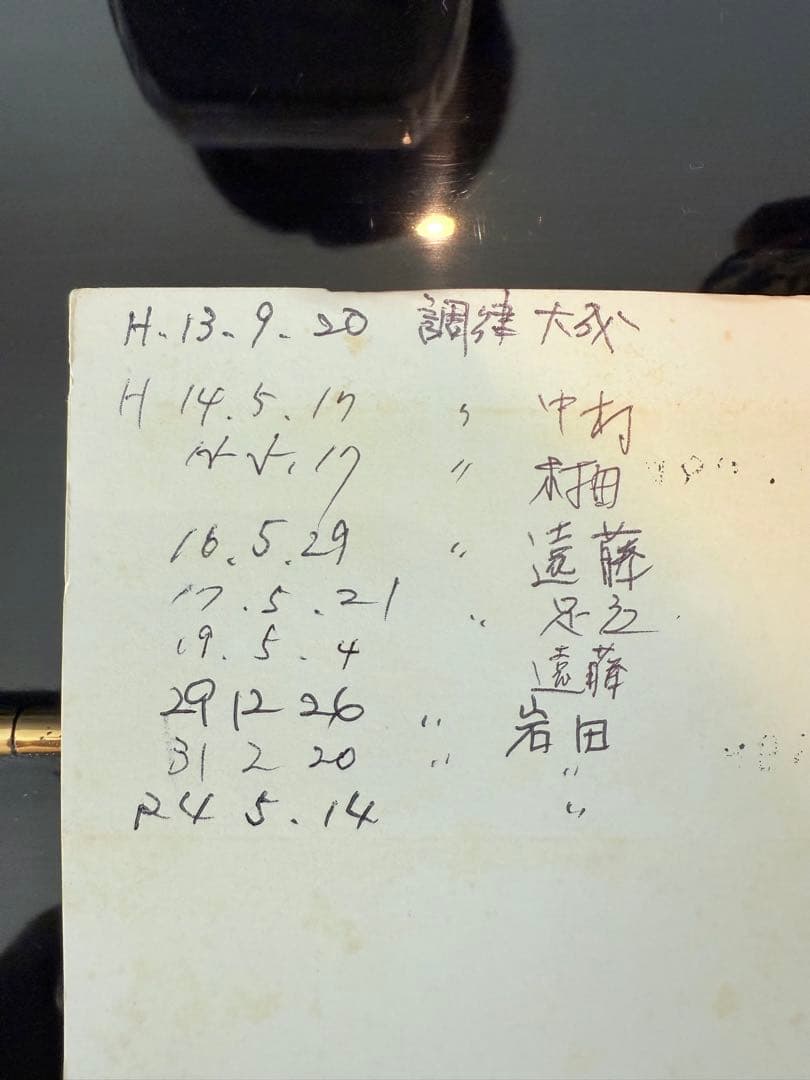 H.13.9.20 調律 大成
H 14.5.17 〃 中村
15.5.17 〃 村田
16.5.29 〃 遠藤
17.5.21 〃 足立
19.5.4 遠藤
29 12 26 〃 岩田
31 2 20 〃 〃
R4 5.14 〃